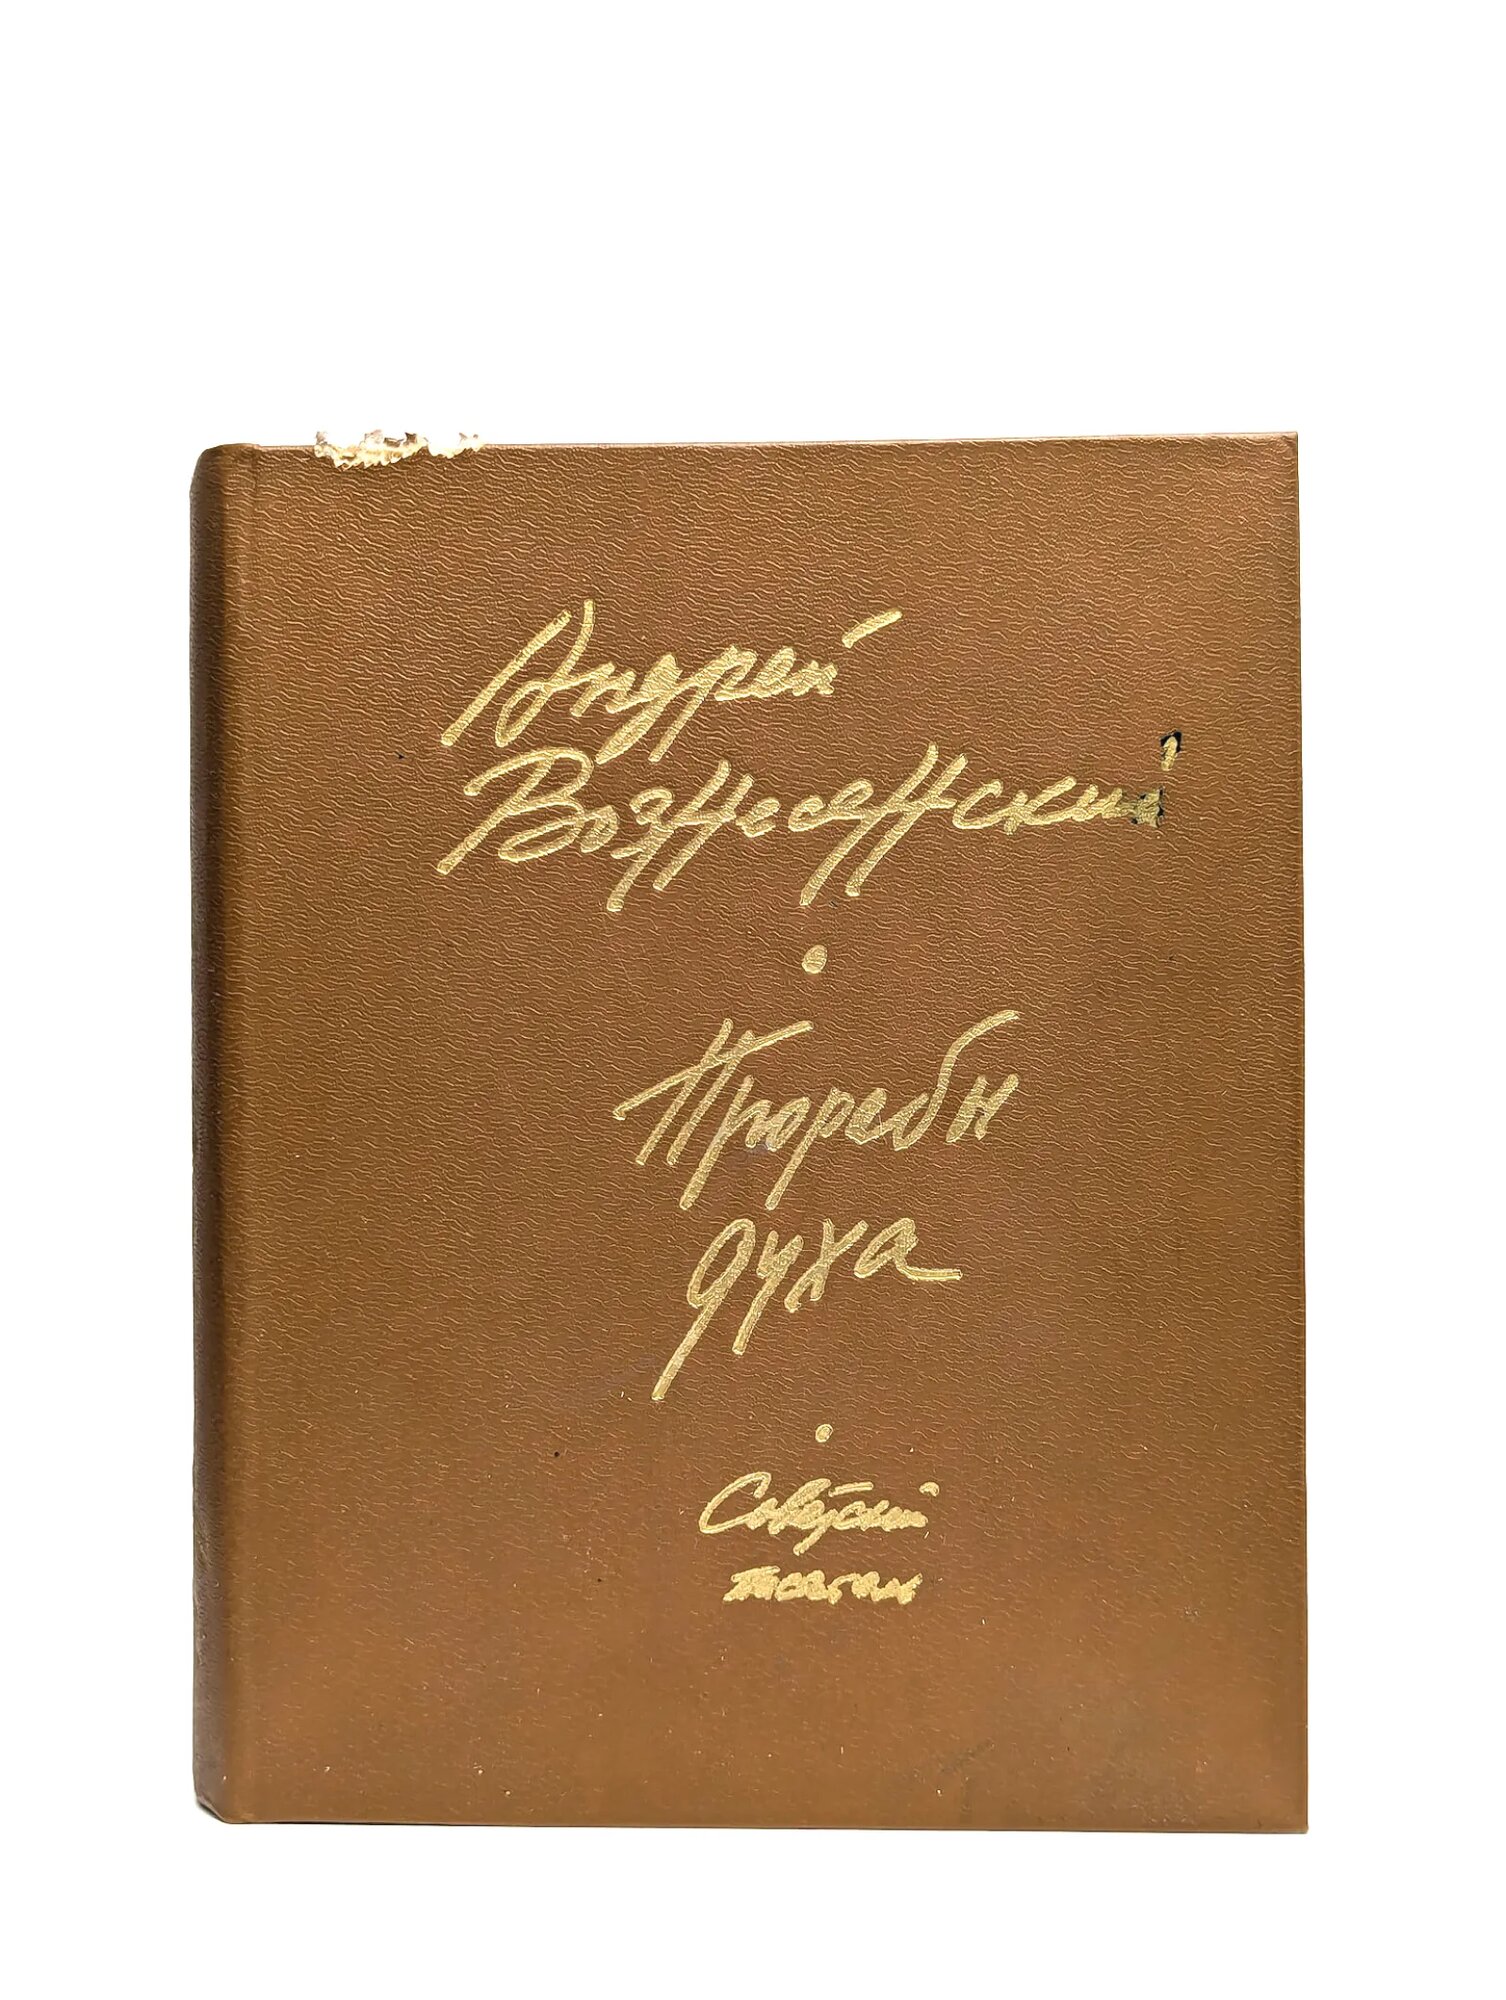 Андрей
Вознесенский
Прорабы
духа
Советский
писатель